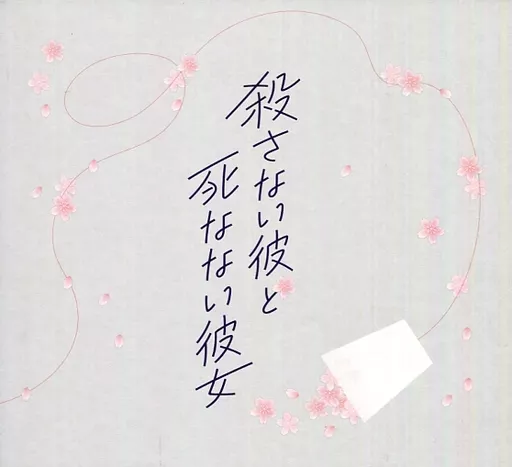 殺さない彼と
死なない彼女